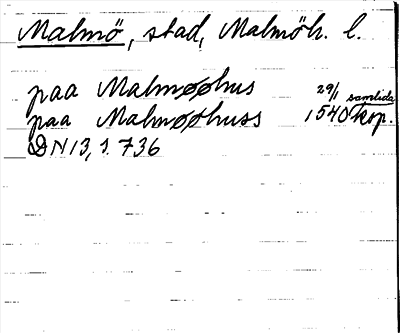 Malmö, stad, Malmöh. l.
paa Malmøøhus 29/1 samtida
paa Malmøøhuss 1540 kop.
DN 13, s. 736